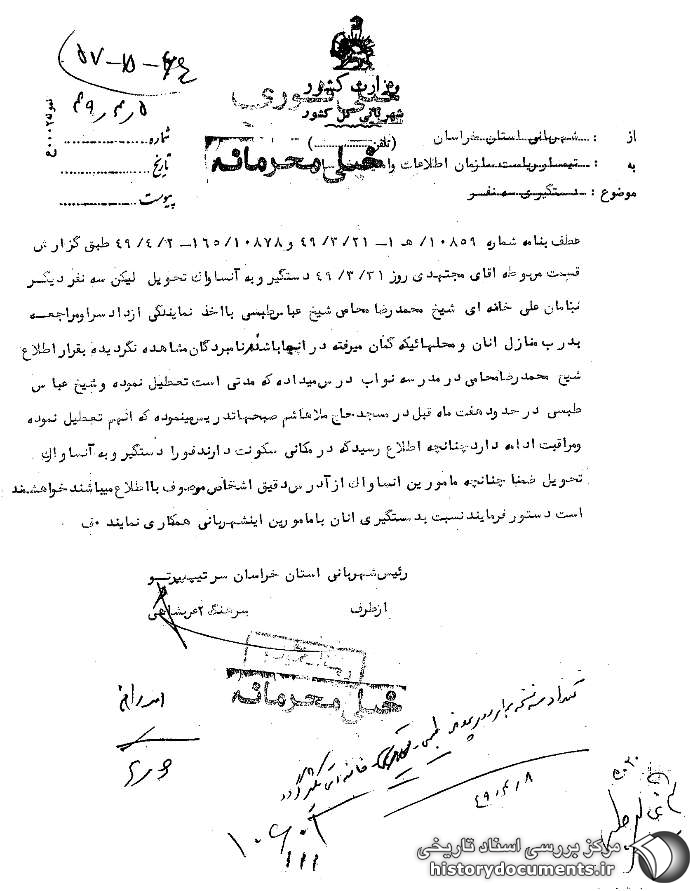 ۵۷-۵-۴۶
۴۹٫۴٫۵
وزارت کشور
خیلی فوری
شهربانی کل کشور
شماره
تاریخ
پیوست
(تلفن)
خیلی محرمانه
از : شهربانی استان خراسان
به : تیمسار ریاست سازمان اطلاعات و
موضوع : دستگیری سه نفر
عطف بنامه شماره ۱۰۸۵۹/ هـ ۱- ۴۹/۳/۲۱ و ۱۶۵/۱۰۸۷۸- ۴۹/۴/۲ طبق گزارش
قسمت مربوطه اقای مجتهدی روز ۴۹/۳/۳۱ دستگیر و به آنساواک تحویل لیکن سه نفر دیگر
بنامان علی خانه ای شیخ محمدرضا محامی شیخ عباس طبسی با اخذ نمایندگی از دادسرا و مراجعه
بدرب منازل انان و محلهائیکه گمان میرفته در انجا باشند نامبردگان مشاهده نگردیده بقرار اطلاع
شیخ محمد رضا محامی در مدرسه نواب درس میداده که مدتی است تعطیل نموده و شیخ عباس
طبسی در حدود هفت ماه قبل در مسجد حاج ملاهاشم صبحها تدریس مینموده که انهم تعطیل نموده
و مراقبت ادامه دارد چنانچه اطلاع رسید که در مکانی سکونت دارند فورا دستگیر و به آنساواک
تحویل ضمنا چنانچه مامورین انساواک از آدرس دقیق اشخاص موصوف با اطلاع میباشند خواهشمند
است دستور فرمایند نسبت بدستگیری انان با مامورین اینشهربانی همکاری نمایند ف
رئیس شهربانی استان خراسان سرتیپ پرتو
از طرف سرهنگ ۲ عربشاهی
خیلی محرمانه
۴۹٫۴٫۸
مرکز بررسی اسناد تاریخی
historydocuments.ir